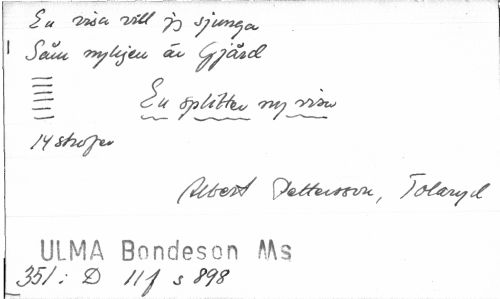 En visa vill jς sjunga
Såm nyligen är Gjård
En splitter ny visa
14 strofer
Albert Pettersson, Tolaryd
ULMA Bondeson Ms
351: D 11f s 898